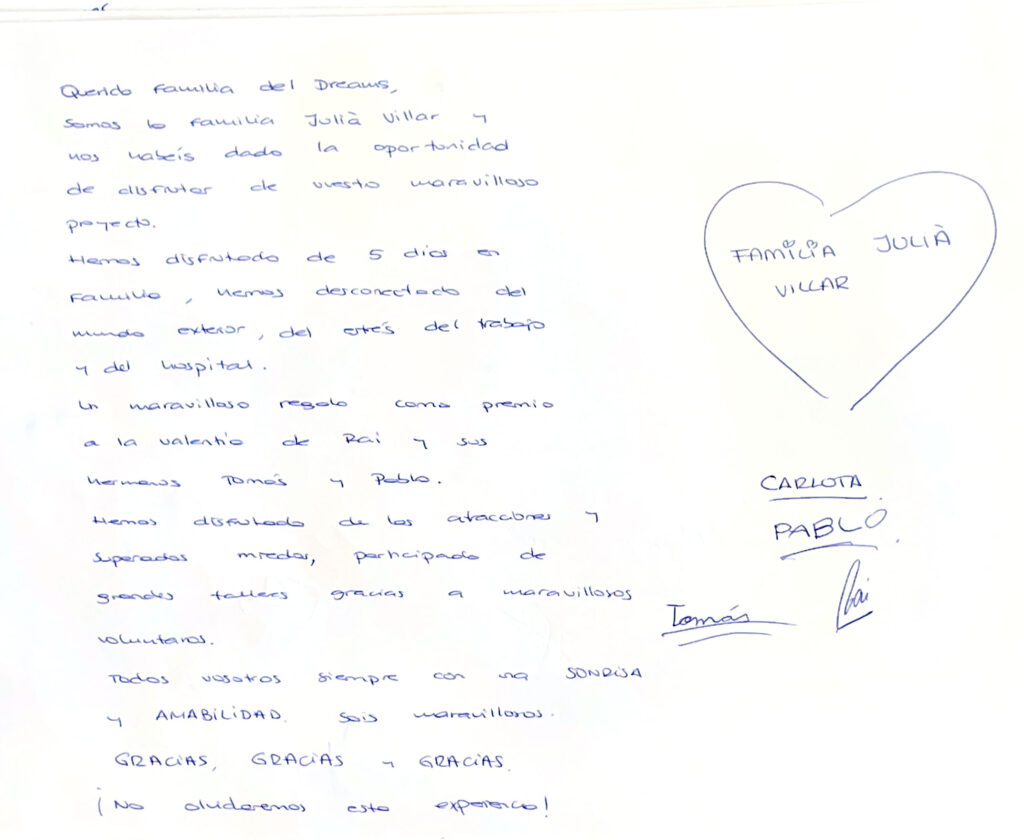 Querida Familia del Dreams,
Somos la familia Julià Villar y
nos habéis dado la oportunidad
de disfrutar de vuesto maravilloso
proyecto.
Hemos disfrutado de 5 días en
Familia, hemos desconectado del
mundo exterior, del estrés del trabajo
y del hospital.
Un maravilloso regalo como premio
a la valentía de Rai y sus
hermanos Tomás y Pablo.
Hemos disfrutado de las atracciones y
superados miedos, participado de
grandes tallers gracias a maravillosos
voluntarios.
Todos vosotros siempre con una SONRISA
y AMABILIDAD. Sois maravillosos.
GRACIAS, GRACIAS y GRACIAS.
¡No olvidaremos esta experiencia!
FAMILIA JULIÀ
VILLAR
CARLOTA
PABLO
Tomás
Rai